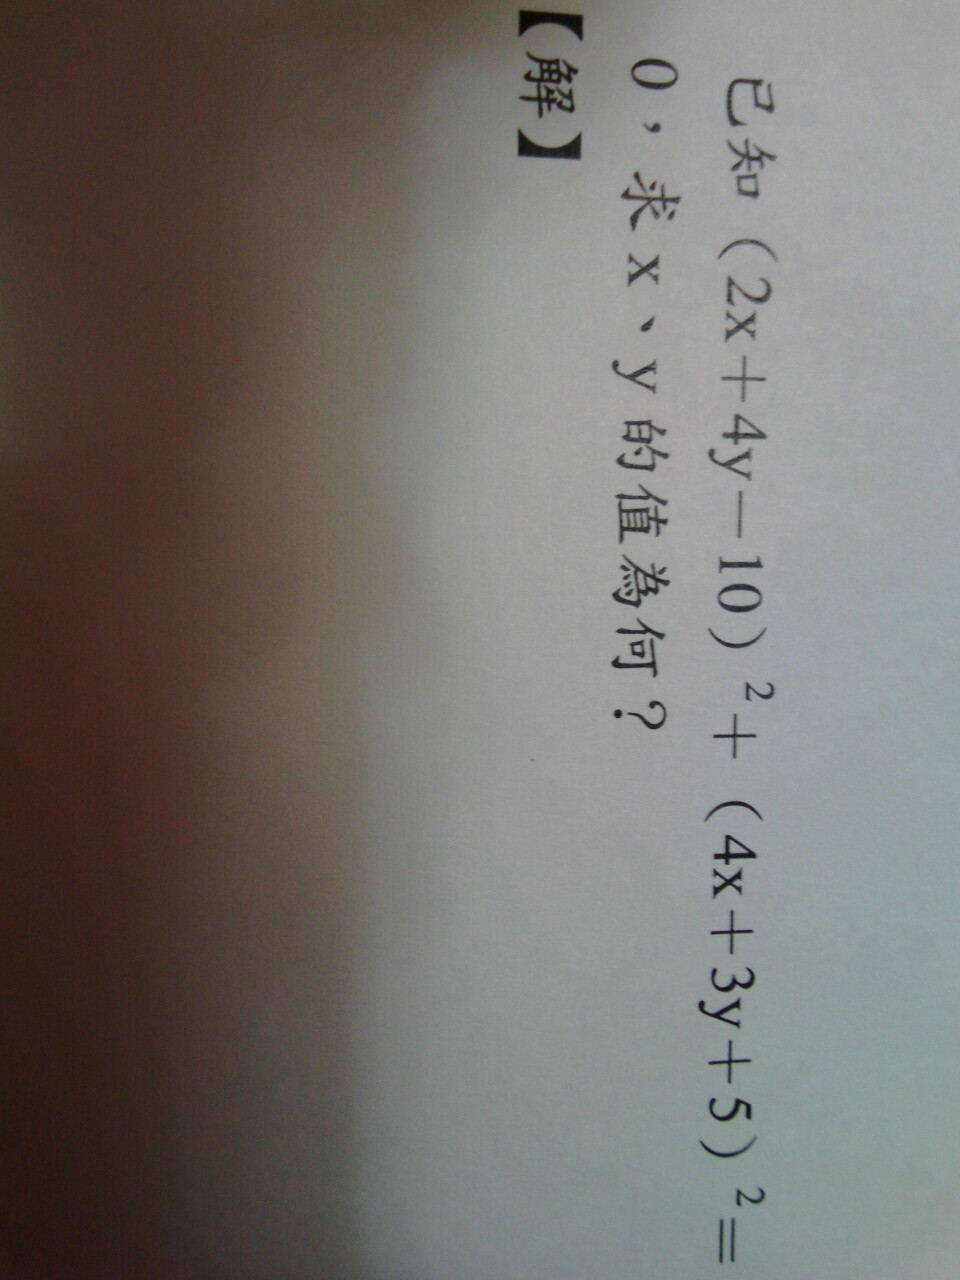 已知（2x＋4y－10）²＋（4x＋3y＋5）²＝
0，求x、y的值為何？
【解】